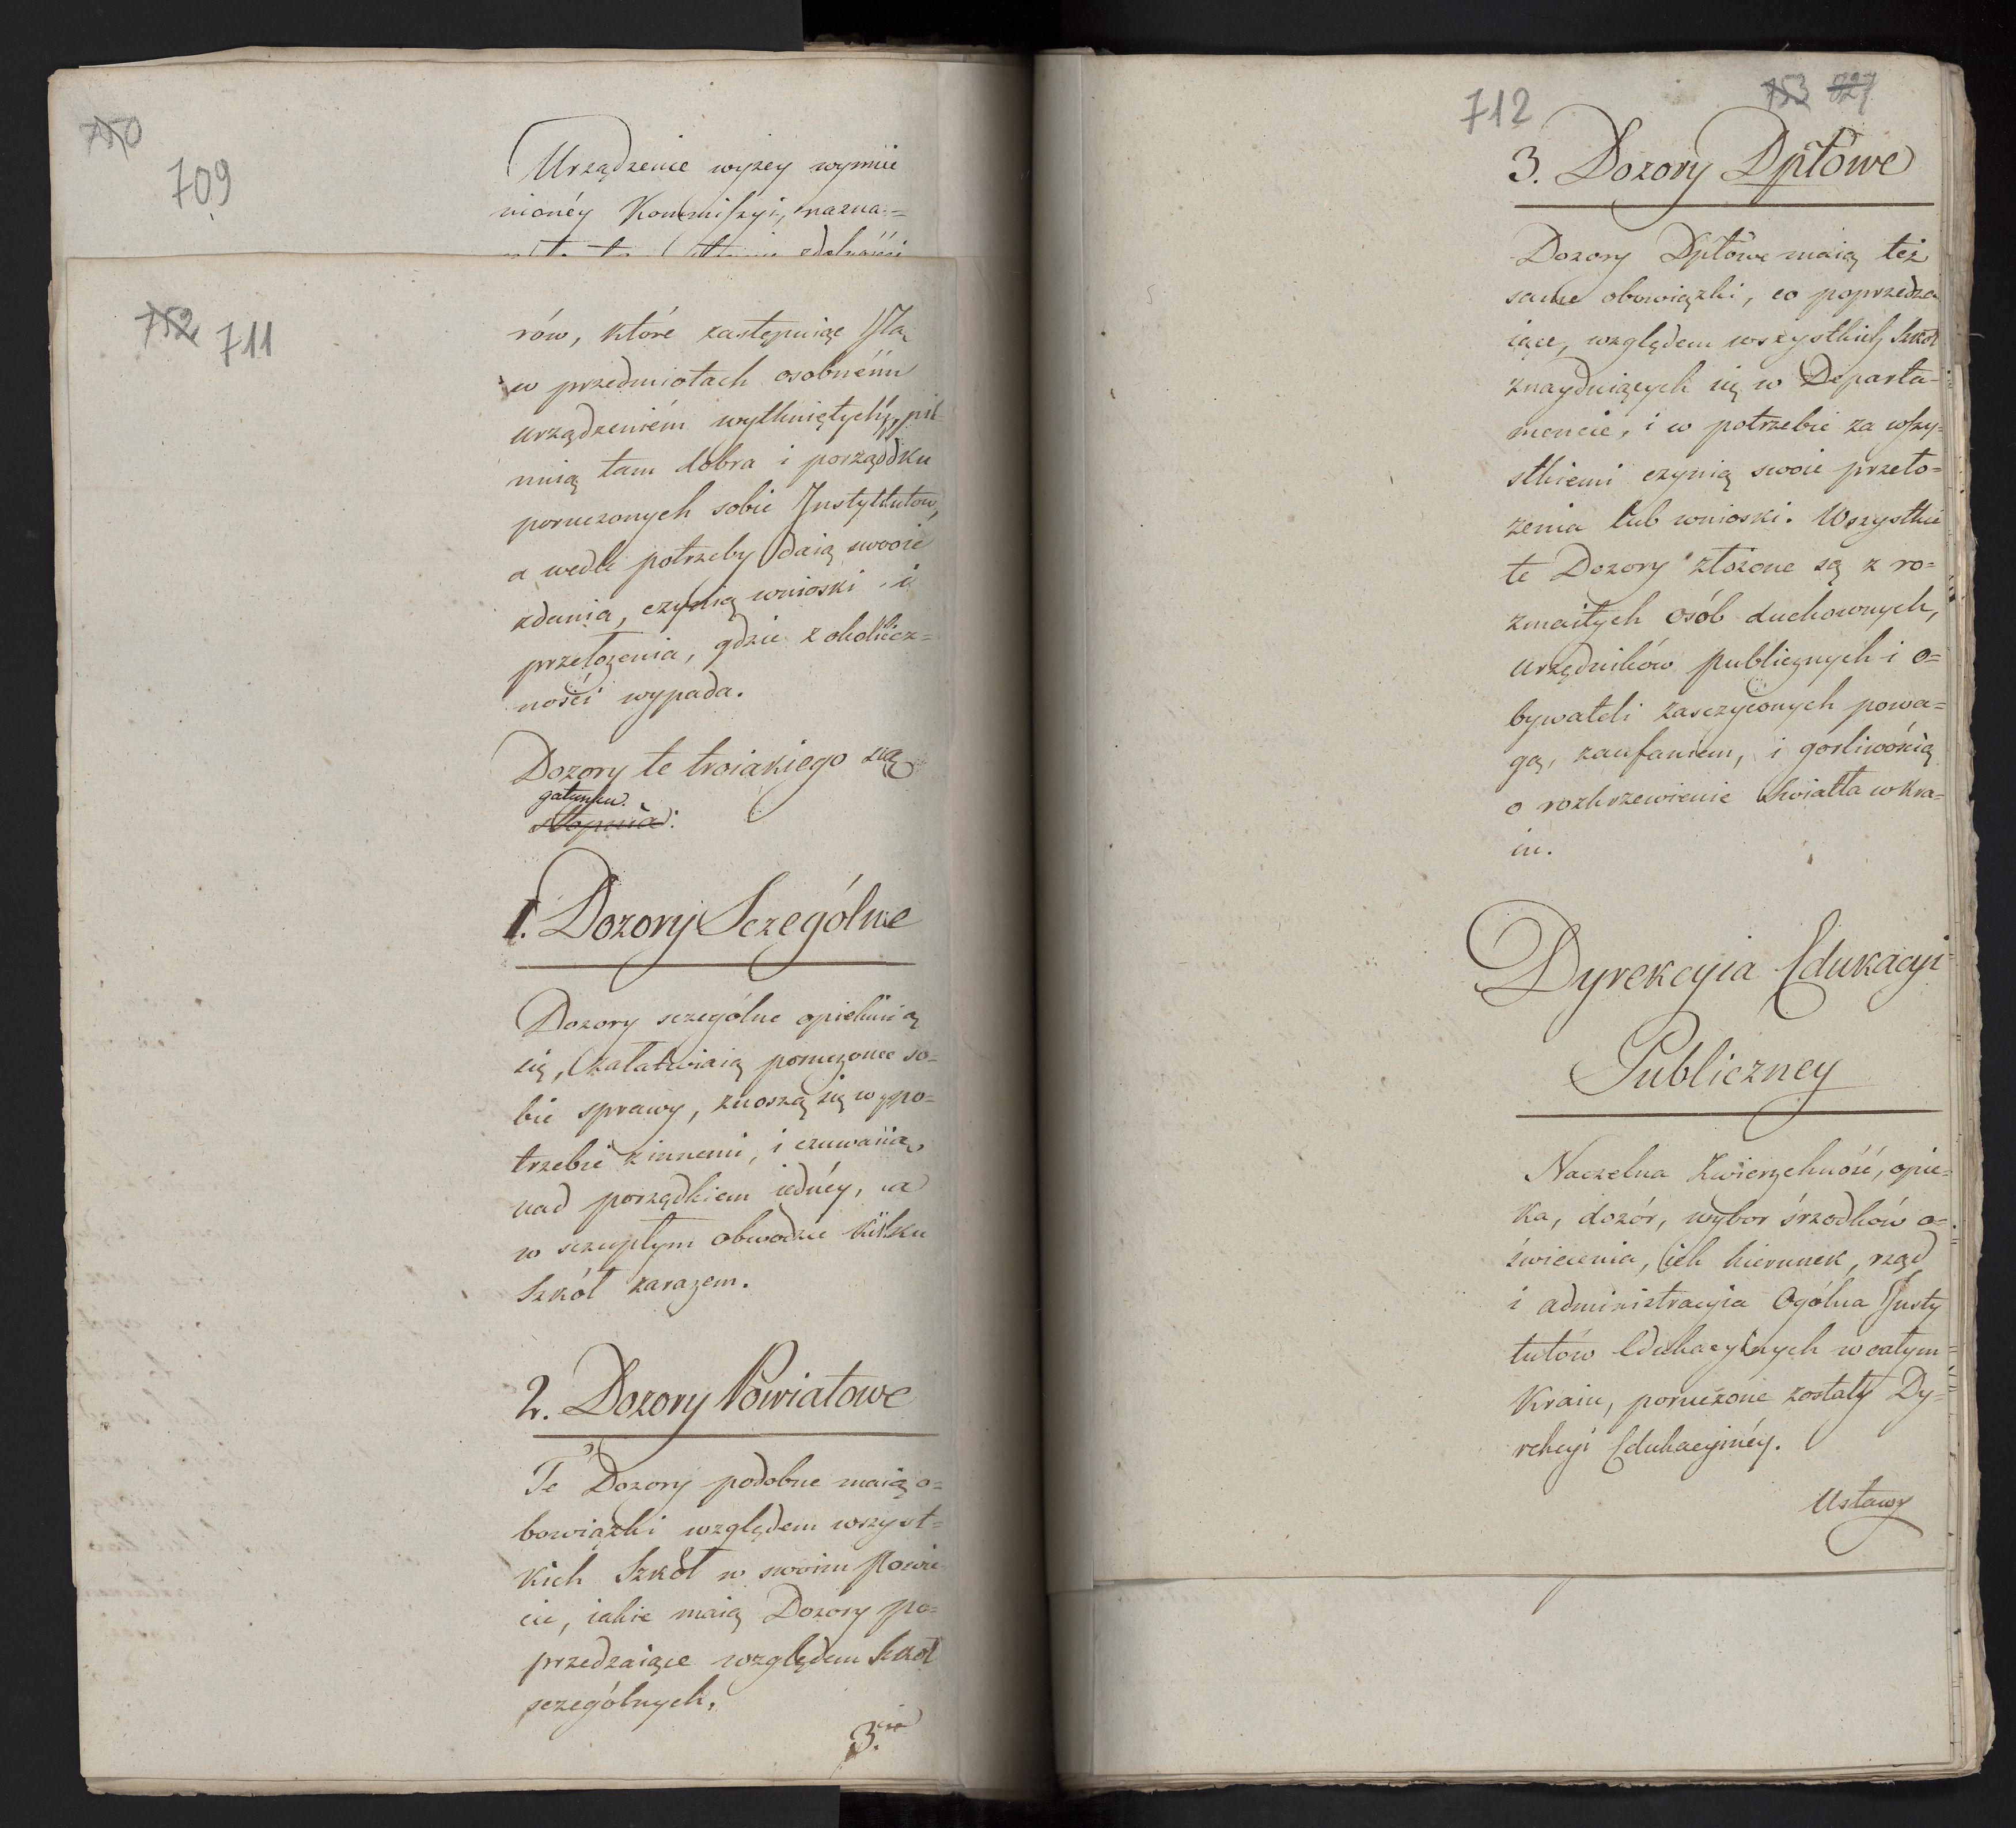 750
709
Urządzenie wyżey wymie
nionéy Kommiſzyi, nazna=
752 711
rów, które zastępuiąc Jzą
w przedmiotach osobném
urządzeniém wytkniętych, pil=
nuią tam dobra i porządku
poruczonych sobie Instytutów,
a wedle potrzeby daią swoie
zdania, czynią wnioski i
przełożenia, gdzie z okolicz=
ności wypada.
Dozory te troiakiego są
gatunku.
stopnia:
1. Dozory Sczególne
Dozory sczególne opiekuią
się, załatwiaią poruczone so=
bie sprawy, znoszą się w po=
trzebie z innemi, i czuwaią
nad porządkiem iednéy, a
w szczupłym obwodzie kilku
Szkół zarazem.
2. Dozory Powiatowe
Te Dozory podobne maią o=
bowiązki względem wszyst=
kich Szkół w swoim Powie
cie, iakie maią Dozory po=
przedzaiące względem Szkół
sczególnych.
3.cie
712
753 827
3. Dozory Dptowe
Dozory Dptowe maią też
same obowiązki, co poprzedza
iące, względem wszystkich Szkół
znayduiących się w Departa=
mencie, i w potrzebie za wſzy=
stkiemi czynią swoie przeło=
żenia lub wnioski. Wszystkie
te Dozory złożone są z ro=
zmaitych osób duchownych,
urzędników publicznych i o=
bywateli zasczyconych powa=
gą, zaufaniem, i gorliwością
o rozkrzewienie światła w kra=
iu.
Dyrekcyia Edukacyi
Publiczney
Naczelna Zwierzchność, opie=
ka, dozór, wybor śrzodków o=
świecenia, ich kierunek, rząd
i administracyia Ogólna Insty
tutów Edukacyinych w całym
Kraiu, poruczone zostały Dy=
rekcyi Edukacyinéy.
Ustawy